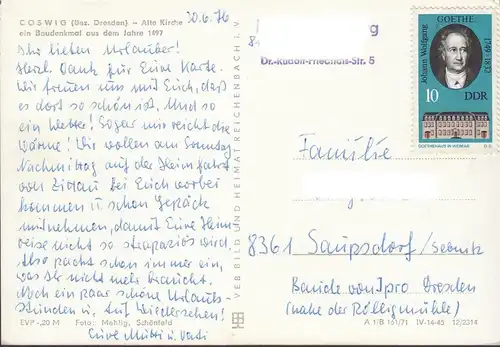 COSWIG (Bez. Dresden) – Alte Kirche
ein Baudenkmal aus dem Jahre 1497
30.6.76
Ihr lieben Urlauber!
Herzl. Dank für Eure Karte.
Wir freuen uns mit Euch, daß
es dort so schön ist. Und so
ein Wetter! Sogar mir reicht die
Wärme! Wir wollen am Sonntag
Nachmittag auf der Heimfahrt
von Zittau bei Euch vorbei
kommen u. schon Gepäck
mitnehmen, damit Eure Heim
reise nicht so strapaziös wird.
Also packt schon immer ein,
was Ihr nicht mehr braucht.
Noch ein paar schöne Urlaubs-
stunden u. auf Wiedersehen!
Eure Mutti u. Vati
EVP -,20 M Foto: Mehlig, Schönfeld
VERBILD UND HEIMAT REICHENBACH I. V.
g
8
Dr.-Rudolf-Friedrichs-Str. 5
Johann Wolfgang
GOETHE
1749-1832
10 DDR
GOETHEHAUS IN WEIMAR
Familie
8361 Saupsdorf/Sebnitz
Baude von Ipro Dresden
(nahe der Rölligmühle)
A 1/B 161/71 IV-14-45 12/2314